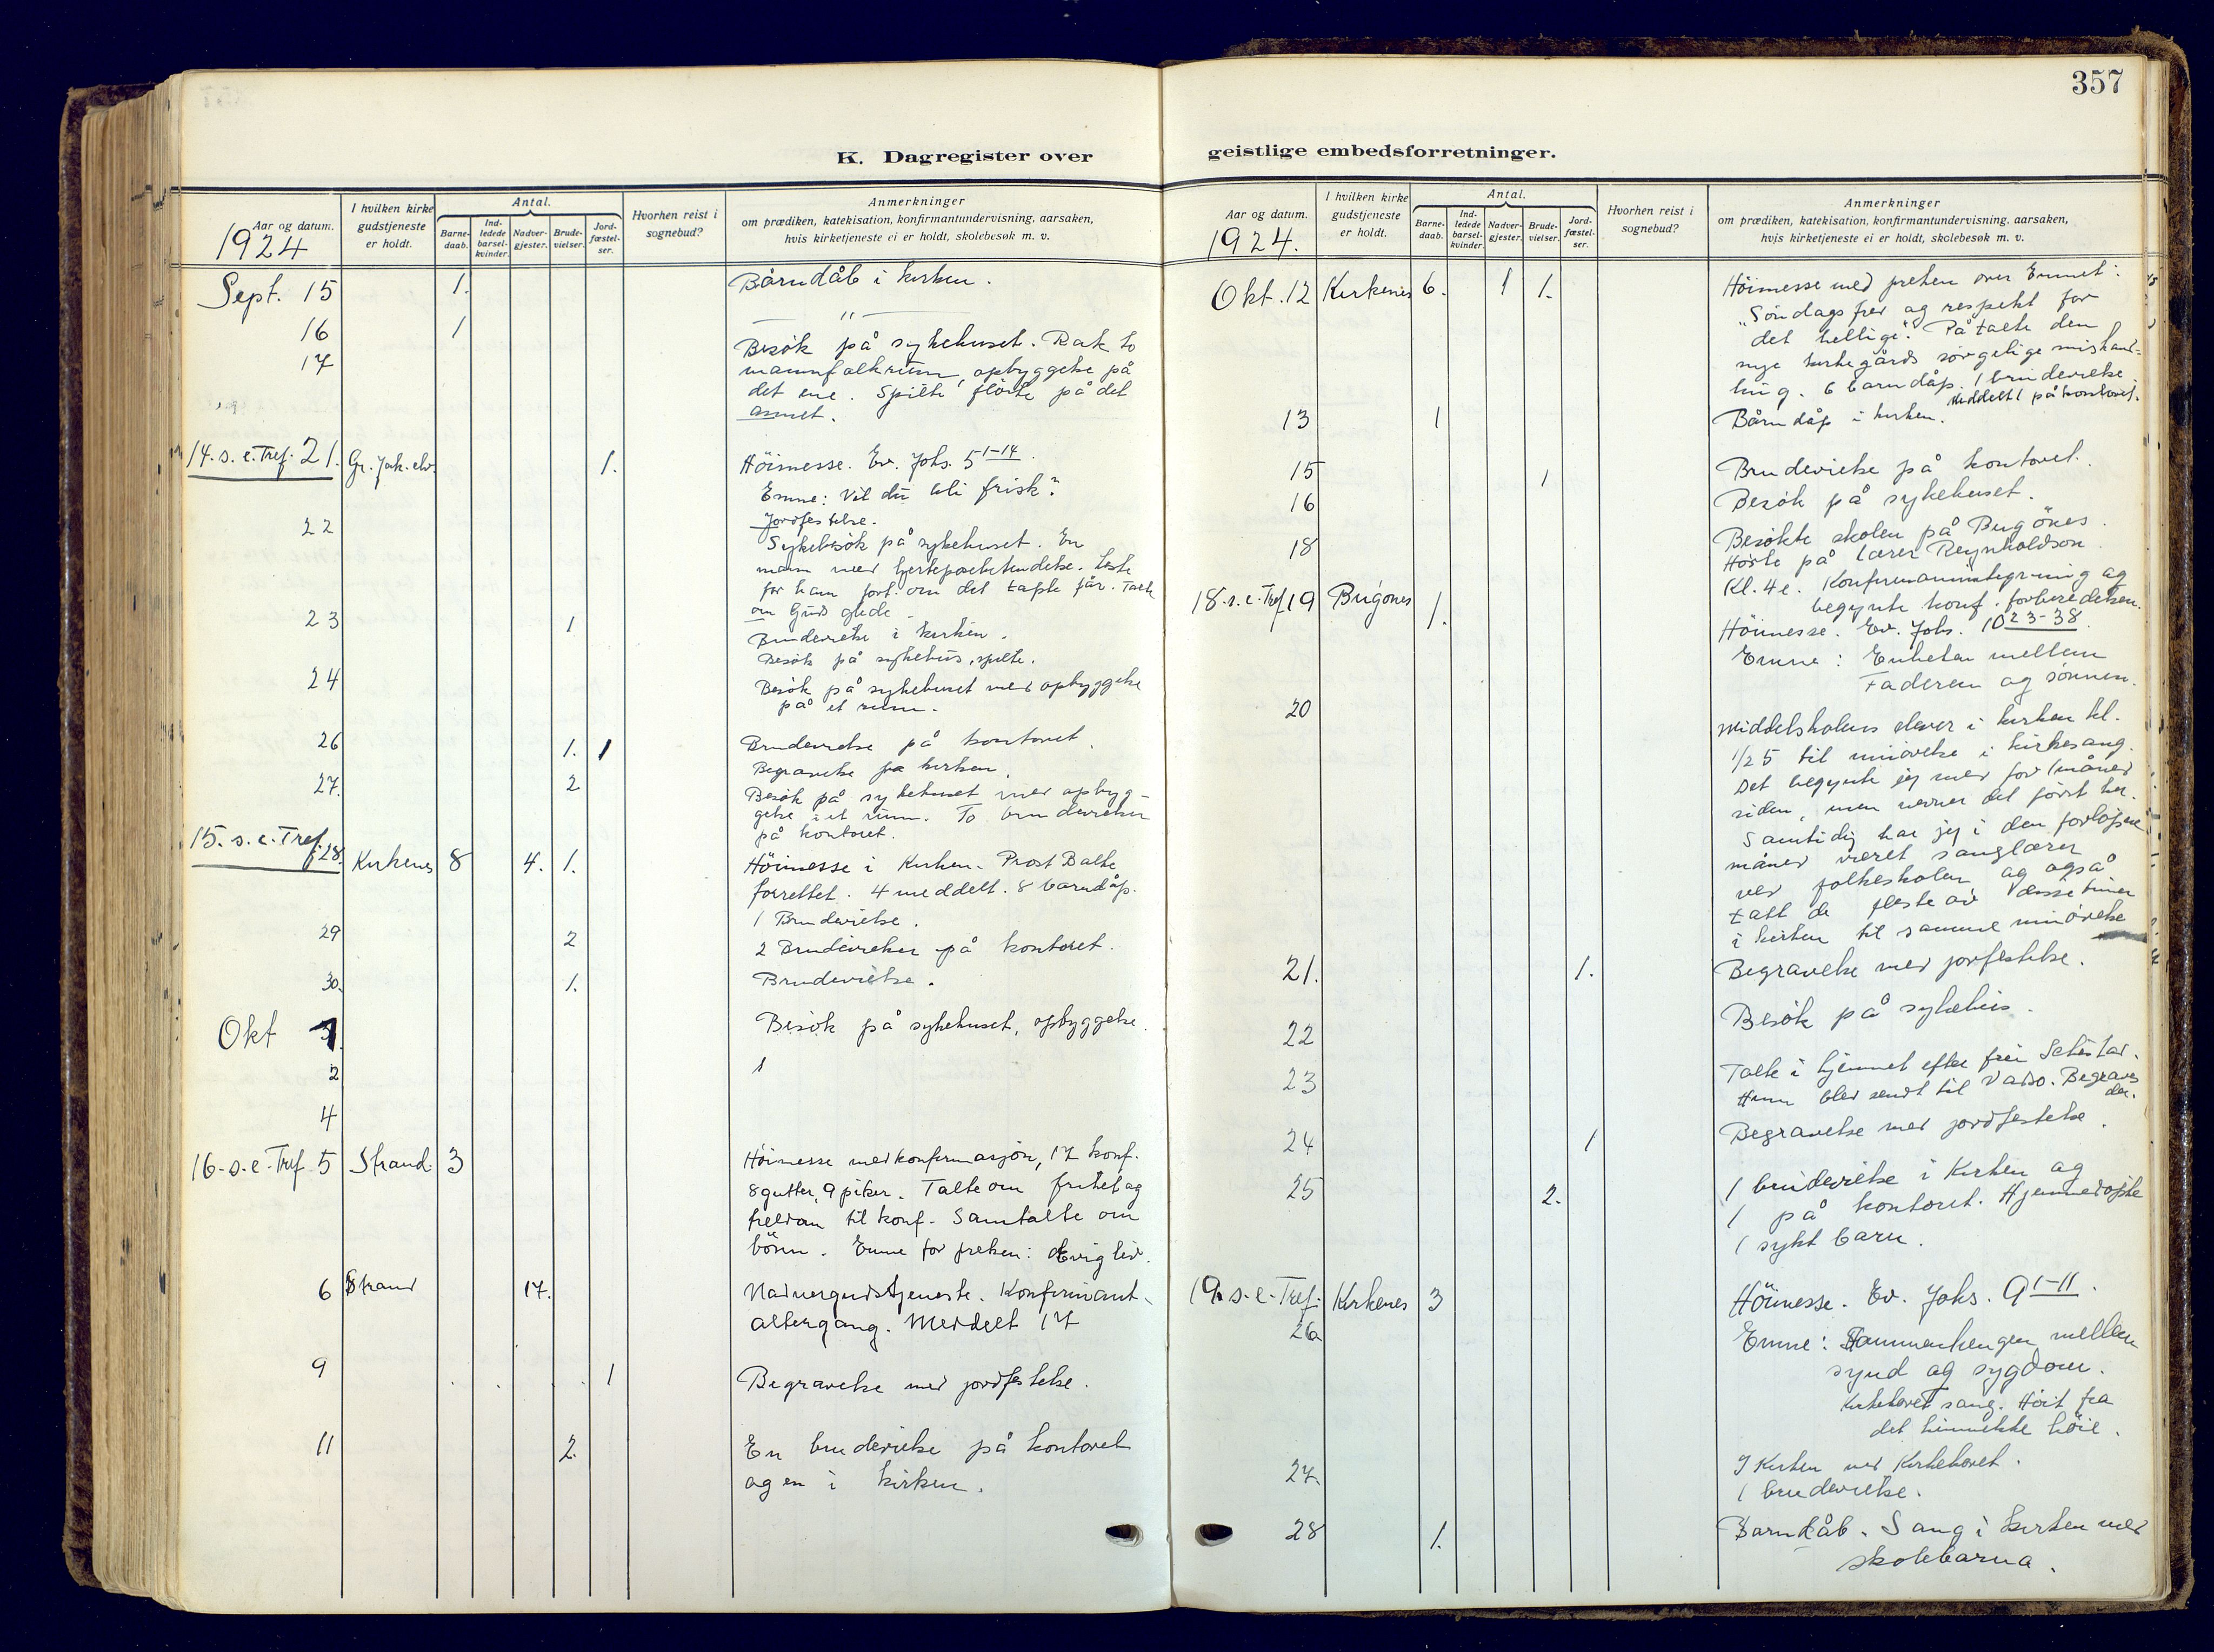 357
K. Dagregister over
Aar og datum.
1924
I hvilken kirke
gudstjeneste
er holdt.
Antal.
Barne-
daab.
Ind-
ledede
barsel-
kvinder.
Nadver-
gjester.
Brude-
vielser.
Jord-
fæstel-
ser.
Hvorhen reist i
sognebud?
Anmerkninger
om prædiken, katekisation, konfirmantundervisning, aarsaken,
hvis kirketjeneste ei er holdt, skolebesøk m. v.
Sept. 15 1. Barndåb i kirken.
16 1 — " —
17 Besök på sykehuset. Rak to
mannfolkrum, opbyggelse på
det ene. Spilte fløite på det
annet.
14. s. e. Tref. 21. Gr. Jak. elv. 1. Höimesse. Ev. Johs. 5 1-14.
Emne: Vil du bli frisk?
Jordfestelse.
22 Sykebesök på sykehuset. En
mann med hjerteposebetendelse. Leste
for ham fort. om det tapte får. Talte
om Guds glede.
23 1 Brudevielse i kirken.
Besök på sykehus, spilte.
24 Besök på sykehuset med opbyggelse
på et rum.
26 1. 1 Brudevielse på kontoret.
Begravelse fra kirken.
27. 2 Besök på sykehuset med opbyg-
gelse i et rum. To brudevielser
på kontoret.
15. s. e. Tref. 28. Kirkenes 8 4. 1. Höimesse i Kirken. Prost Balke
forrettet. 4 meddelt. 8 barndåp.
1 Brudevielse.
29 2 2 Brudevielser på kontoret.
30. 1. Brudevielse.
Okt 1. Besök på sykehuset, opbyggelse.
2
4
16. s. e. Tref 5 Strand 3 Höimesse med konfirmasjon, 17 konf.
8 gutter, 9 piker. Talte om frihet og
treldom til konf. Samtalte om
bönn. Emne for preken: Evig liv.
6 Strand 17. Nadvergudstjeneste. Konfirmant-
altergang. Meddelt 17
9 1 Begravelse med jordfestelse.
11 2. En brudevielse på kontoret
og en i kirken.
geistlige embedsforretninger.
Aar og datum.
1924.
I hvilken kirke
gudstjeneste
er holdt.
Antal.
Barne-
daab.
Ind-
ledede
barsel-
kvinder.
Nadver-
gjester.
Brude-
vielser.
Jord-
fæstel-
ser.
Hvorhen reist i
sognebud?
Anmerkninger
om prædiken, katekisation, konfirmantundervisning, aarsaken,
hvis kirketjeneste ei er holdt, skolebesøk m. v.
Okt. 12 Kirkenes 6. 1 1. Höimesse med preken over Emnet:
"Söndagsfred og respekt for
det hellige". Påtalte den
nye kirkegårds sörgelige mishand-
ling. 6 barndåp. 1 brudevielse.
Meddelt 1 på kontoret.
13 1 Barndåp i kirken.
15 1 Brudevielse på kontoret.
16 Besök på sykehuset.
18 Besökte skolen på Bugönes.
Hörte på lærer Reynholdson.
Kl. 4 e. Konfirmantinntegning og
begynte konf. forberedelsen.
18. s. e. Tref 19 Bugönes 1. Höimesse. Ev. Johs. 10 23-38.
Emne: Enheten mellem
Faderen og sönnen.
20 Middelskolens elever i kirken kl.
1/2 5 til innövelse i kirkesang.
Det begynte jeg med for 1 måned
siden, men nevner det först her.
Samtidig har jeg i den forlöpne
måned været sanglærer
ved folkeskolen og også
tatt de fleste av disse timer
i kirken til samme innövelse
21. 1. Begravelse med jorfestelse.
22 Besök på sykehus.
23 Talte i hjemmet efter fru
Hun blev sendt til Vadsö. Begraves
der.
24 1 Begravelse med jordfestelse.
25 2. 1 brudevielse i Kirken og
1 på kontoret. Hjemmedöpte
1 sykt barn.
19. s. e. Tref. Kirkenes 3 Höimesse. Ev. Johs. 9 1-11.
26 Emne: Sammenhengen mellem
synd og sygdom.
Kirkekoret sang. Hört fra
det himmelske höie.
27. I Kirken med Kirkekoret.
1 brudevielse.
28 1. Barndåb. Sang i kirken med
skolebarna.